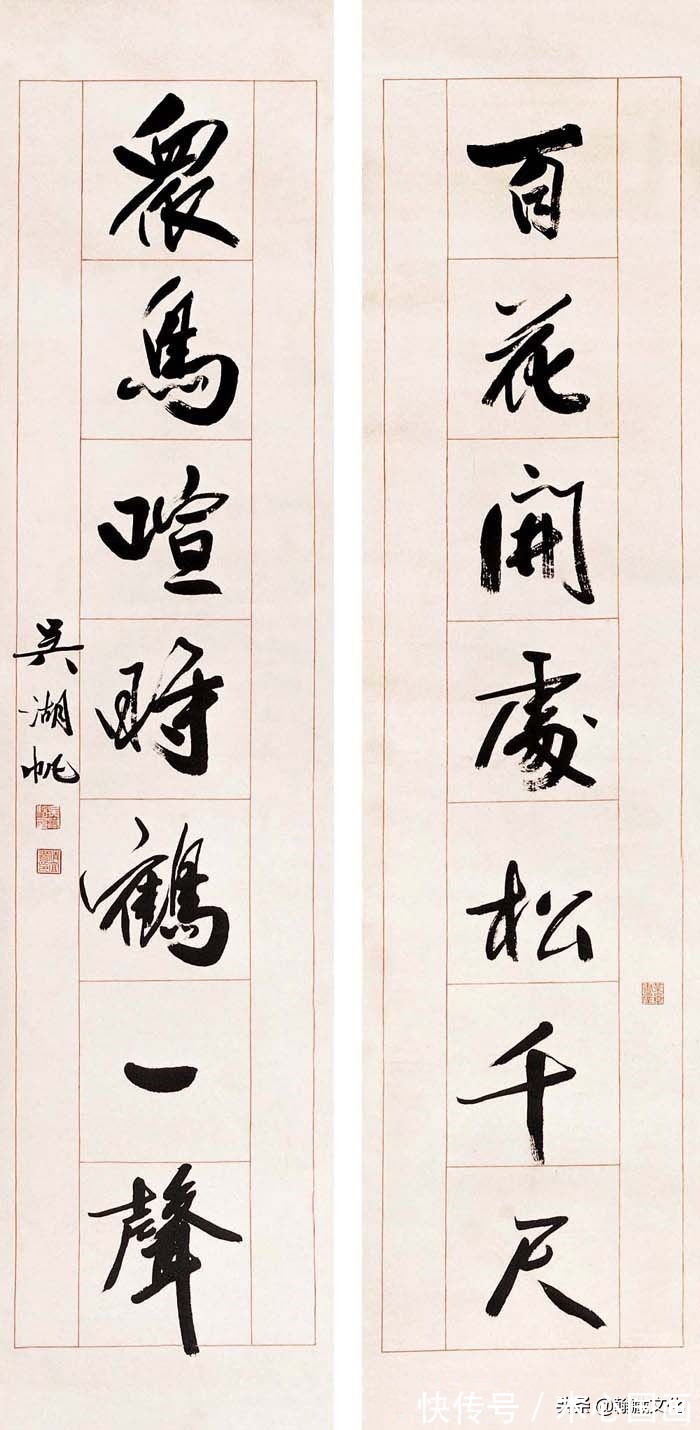 百花開處松千尺
眾鳥喧時鶴一聲
吳湖帆
快传号 /